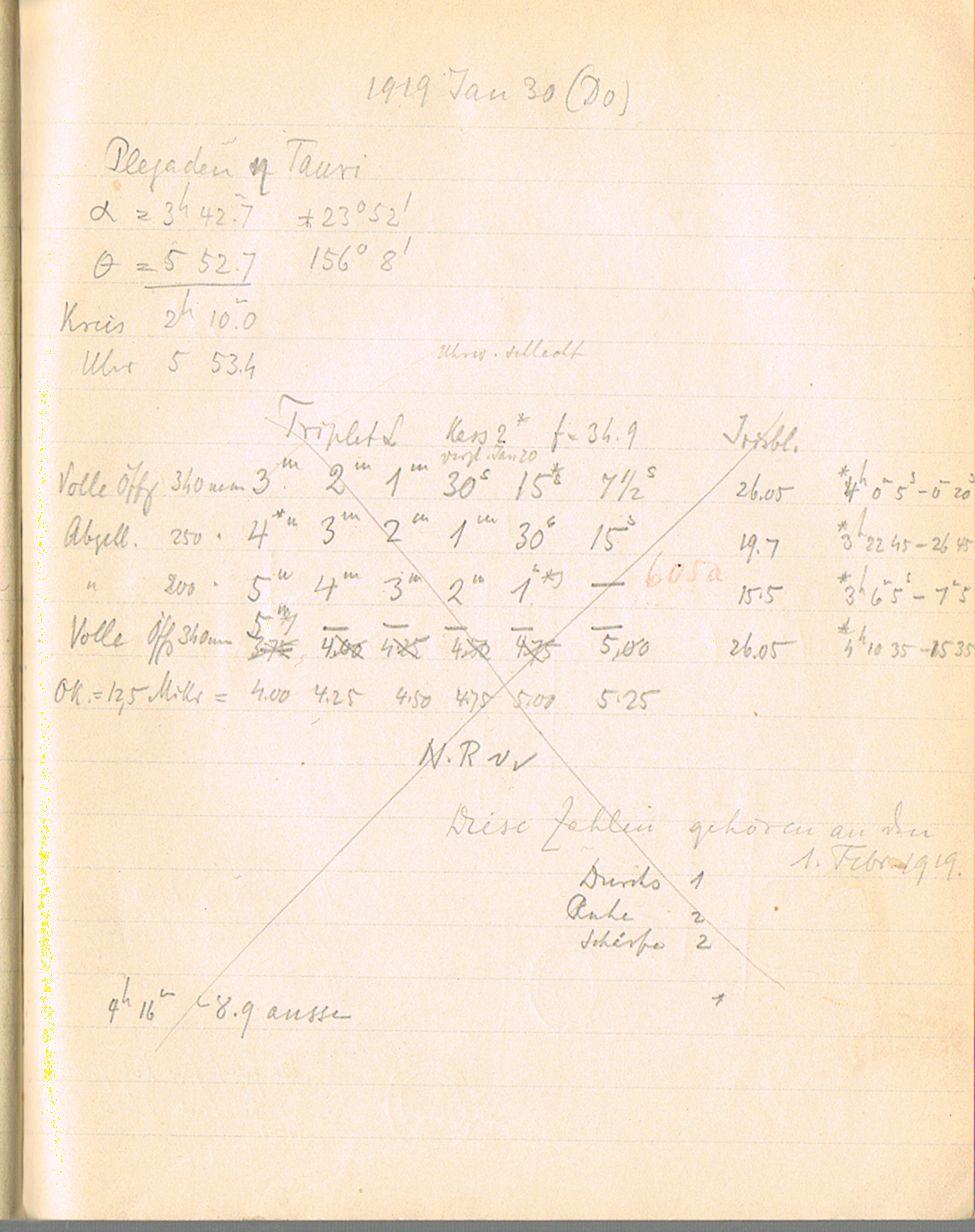 1919 Jan 30 (Do)
Plejaden η Tauri
α = 3h 42.m7 +23° 52'
θ = 5 52.7 156° 8'
Kreis 2h 10.m0
Uhr 5 53.4
Uhrw. schlecht
Triplet Kass 2* f = 34.9 Irisbl.
vergl. Jan 20
Volle Öffg 340mm 3m 2m 1m 30s 15*s 7 1/2s 26.05 *4h 0m 5s - 0m 20s
Abgebl. 250 " 4*m 3m 2m 1m 30s 15s 19.7 *3h 22 45 - 26 45
" 200 " 5m 4m 3m 2m 1m*) — 605a 15.5 *3h 6m 5s - 7m 5s
5m*) — — — — —
Volle Öffg 340mm 3.75 4.00 4.25 4.50 4.75 5,00 26.05 *4h 10 35 - 15 35
OK. = 12,5 Mikr = 4.00 4.25 4.50 4.75 5.00 5.25
N. R v. v
Diese Zahlen gehören an den
1. Febr. 1919.
Durchs 1
Ruhe 2
Schärfe 2
4h 16m -8.9 aussen